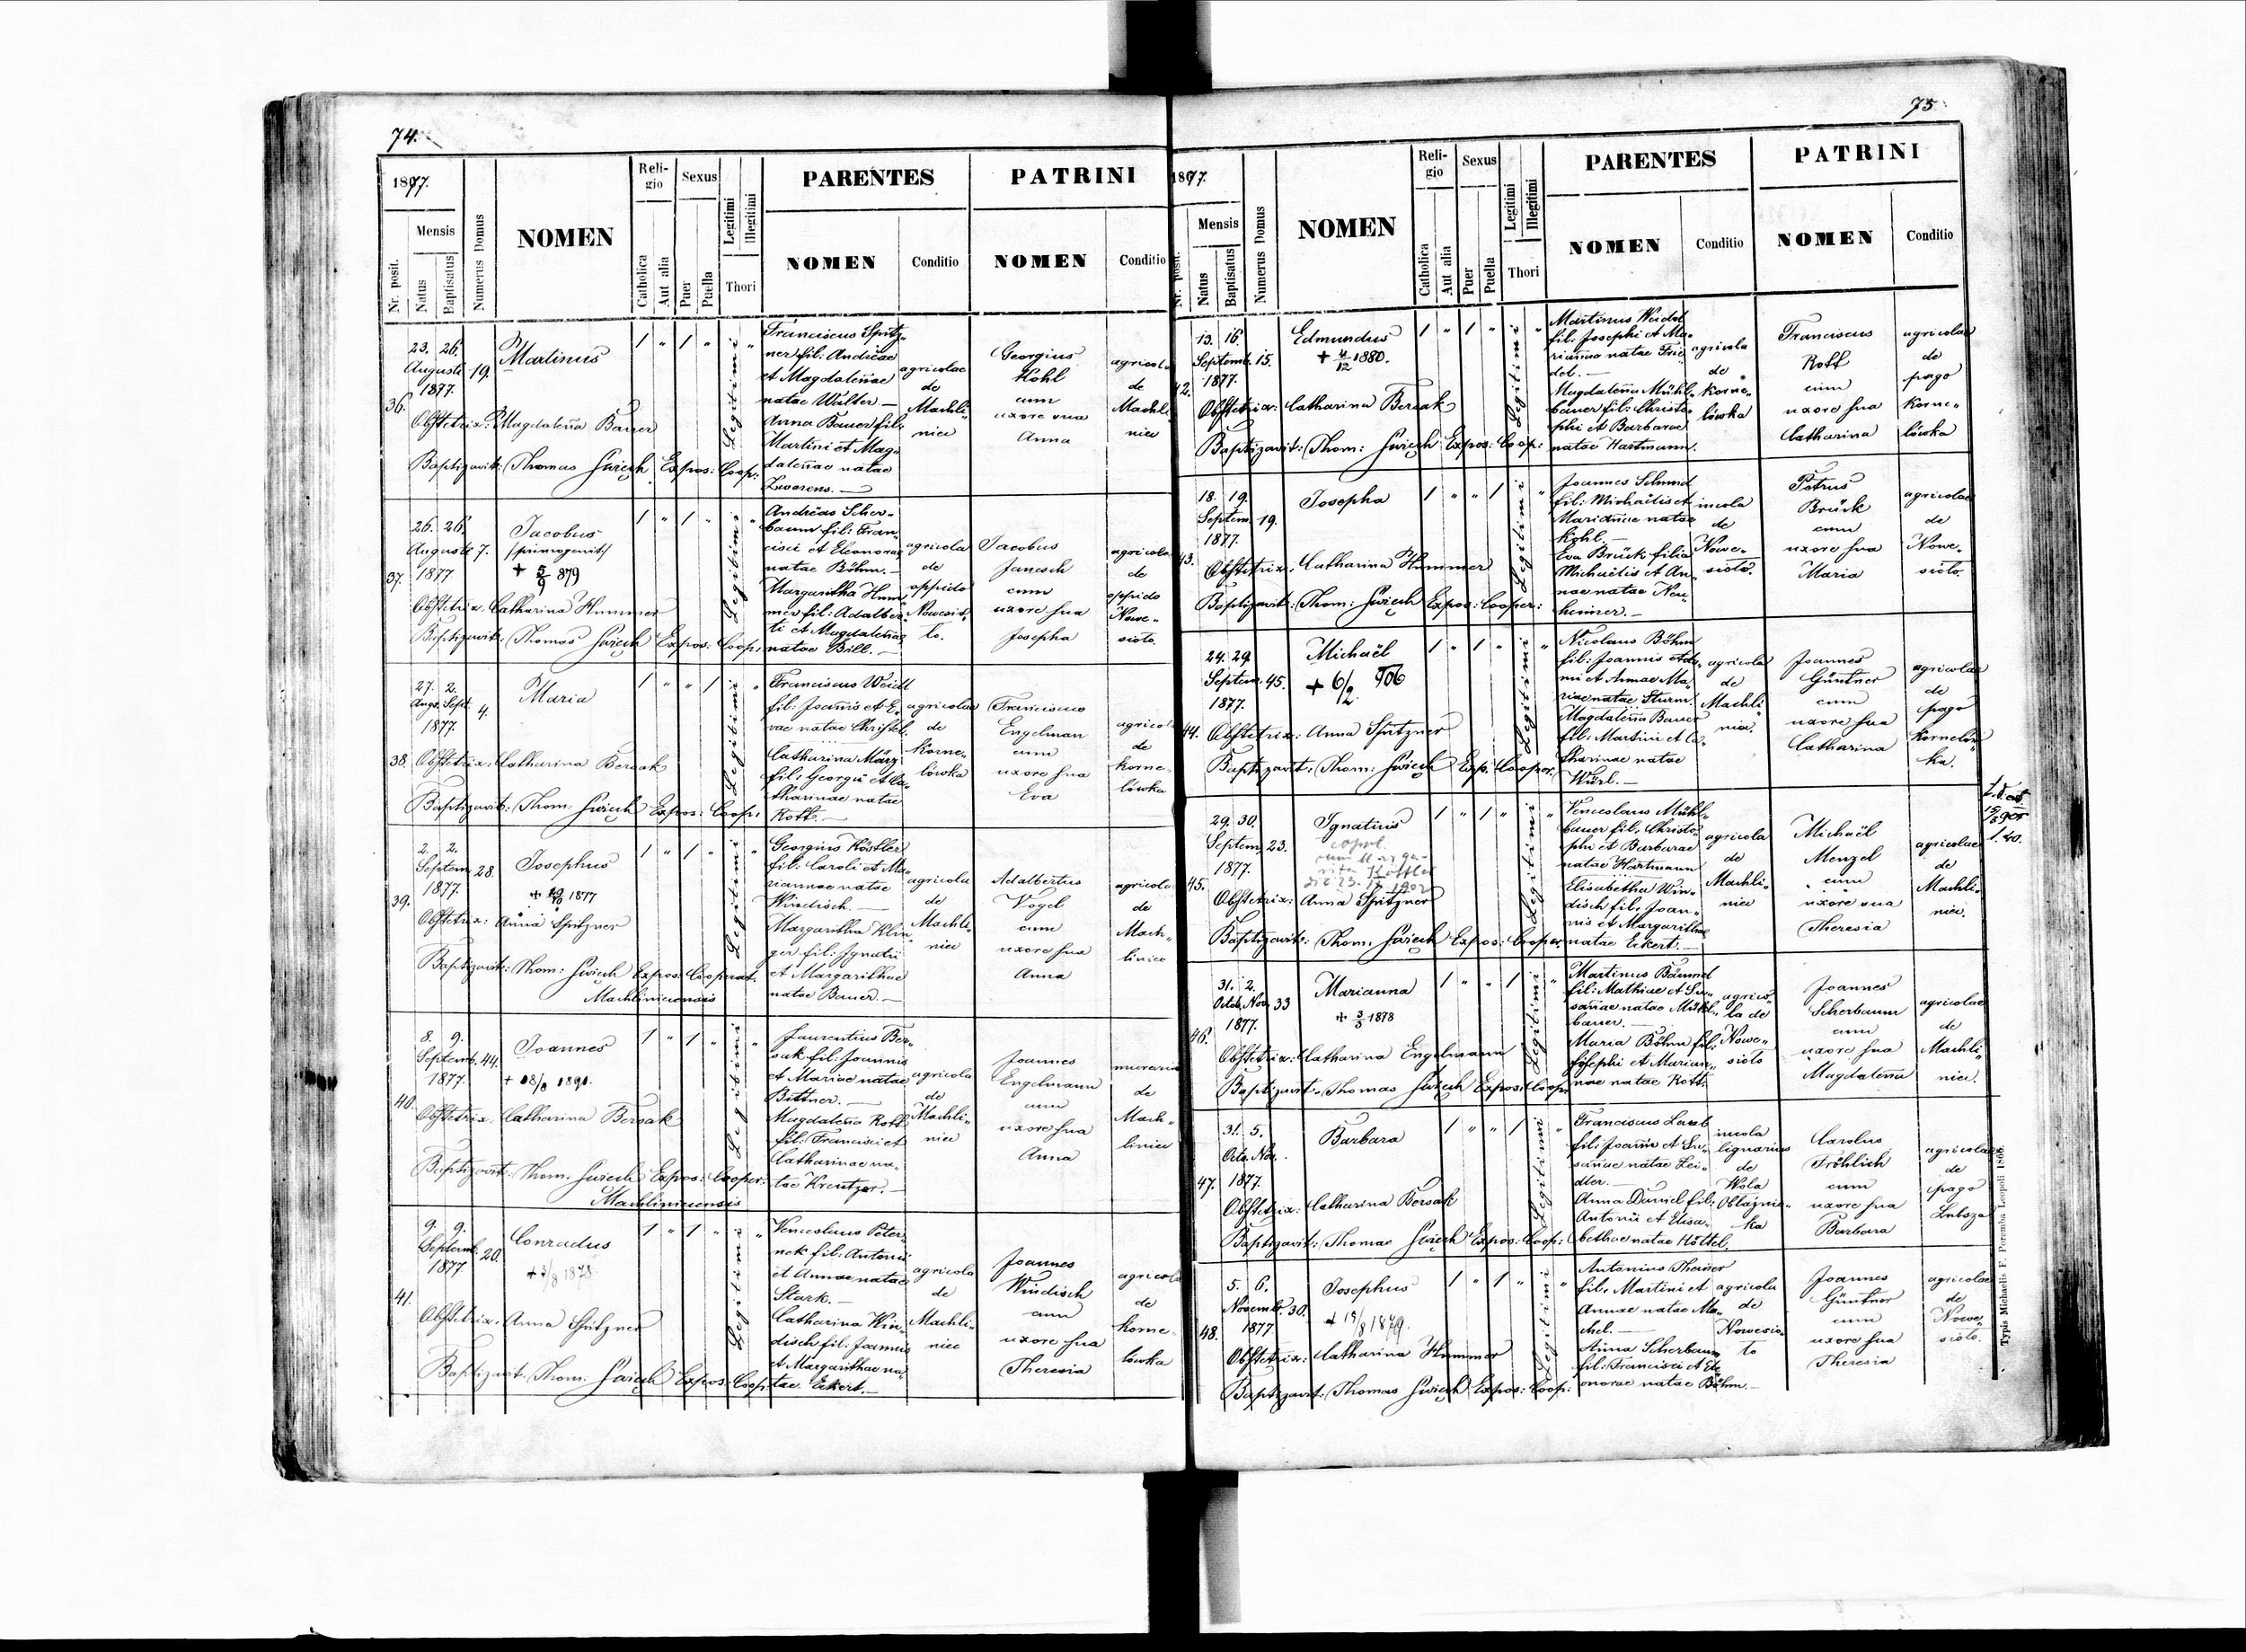 74.
1877.
Nr. posit.
Mensis
Natus
Baptisatus
Numerus Domus
NOMEN
Religio
Catholica
Aut alia
Sexus
Puer
Puella
Legitimi
Illegitimi
Thori
PARENTES
NOMEN
Conditio
PATRINI
NOMEN
Conditio
36.
23. 26.
Augusti 19.
1877.
Martinus
1 " 1 "
Legitimi "
Obstetrix: Magdalena Bauer
Baptizavit: Thomas Swiech Expos: Coop:
Franciscus Spitz„
ner fil: Andreae
et Magdalenae
natae Walter. —
Anna Bauer fil:
Martini et Mag„
dalenae natae
agricolae
de
Machli„
niec
Georgius
Kohl
cum
uxore sua
Anna
agricol
de
Machli
niec
37.
26. 26.
Augusti 7.
1877
Jacobus
/primogenit/
+ 5/9 879
1 " 1 "
Legitimi "
Obstetrix. Catharina Hummer
Baptizavit: Thomas Swiech Expos: Coop:
Andreas Scher„
baum fil: Fran„
cisci et Eleonorae
natae Böhm. —
Margaritha Hum„
mer fil: Adalber„
ti et Magdalenae
natae Brill. —
agricola
de
oppido
Nowesio„
to.
Jacobus
Janesch
cum
uxore sua
Josepha
agricola
de
oppido
Nowe„
sioto.
38.
27. 2.
Aug. Sept. 4.
1877.
Maria
1 " " 1
Legitimi "
Obstetrix: Catharina Bersak
Baptizavit: Thom: Swiech Expos: Coop:
Franciscus Weidl
fil: Joannis et E„
vae natae Christel.
Catharina März
fil: Georgii et Ca„
tharinae natae
Rott. —
agricola
de
Korne„
lówka
Franciscus
Engelman
cum
uxore sua
Eva
agricol
de
Korne„
lówka
39.
2. 2.
Septem. 28.
1877.
Josephus
1877
1 " 1 "
Legitimi "
Obstetrix: Anna Spitzner
Baptizavit: Thom: Swiech Expos: Cooperat.
Machliniecensis
Georgius Köstler
fil: Caroli et Ma„
riannae natae
Windisch. —
Margaritha Klin„
ger fil: Ignatii
et Margarithae
natae Bauer. —
agricola
de
Machli„
niec
Adalbertus
Vogel
cum
uxore sua
Anna
agricola
de
Mach„
liniec
40.
8. 9.
Septemb. 44.
1877.
Joannes
1 " 1 "
Legitimi "
Obstetrix. Catharina Bersak
Baptizavit: Thom. Swiech Expos: Cooper:
Machliniecensis
Laurentius Ber„
sak fil: Joannis
et Mariae natae
Bittner. —
Magdalena Rott
fil: Francisci et
Catharinae na„
tae Kreutzer. —
agricola
de
Machli„
niec
Joannes
Engelmann
cum
uxore sua
Anna
murarius
de
Mach„
liniec
41.
9. 9.
Septemb. 20.
1877
Conradus
+ 3/8 1878
1 " 1 "
Legitimi "
Obstetrix. Anna Spitzner
Baptizavit. Thom: Swiech Expos: Coop.
Venceslaus Peter„
nek fil: Antonii
et Annae natae
Stark. —
Catharina Win„
disch fil: Joannis
et Margarithae na„
tae Eckert. —
agricola
de
Machli„
niec
Joannes
Windisch
cum
uxore sua
Theresia
agricola
de
Korne„
lówka
75
1877.
Nr. posit.
Mensis
Natus
Baptisatus
Numerus Domus
NOMEN
Religio
Catholica
Aut alia
Sexus
Puer
Puella
Legitimi
Illegitimi
Thori
PARENTES
NOMEN
Conditio
PATRINI
NOMEN
Conditio
42.
13. 16.
Septemb. 15.
1877.
Edmundus
+ 4/12 1880.
1 " 1 "
Legitimi "
Obstetrix: Catharina Bersak
Baptizavit: Thom: Swiech Expos: Coop:
Martinus Weidel
fil: Josephi et Ma„
riannae natae Frie„
del. —
Magdalena Mühl„
bauer fil: Christo„
phi et Barbarae
natae Hartmann.
agricola
de
Korne„
lówka
Franciscus
Rott
cum
uxore sua
Catharina
agricolae
de
pago
Korne„
lówka
43.
18. 19.
Septem. 19.
1877.
Josepha
1 " " 1
Legitimi "
Obstetrix: Catharina Hummer
Baptizavit: Thom: Swiech Expos: Cooper:
Joannes Schmid
fil: Michaëlis et
Mariannae natae
Kohl. —
Eva Brück filia
Michaëlis et An„
nae natae Neu„
heimer. —
incola
de
Nowe„
sioto.
Petrus
Brück
cum
uxore sua
Maria
agricolae
de
Nowe„
sioto.
44.
24. 29.
Septem. 45.
1877.
Michaël
+ 6/2 906
1 " 1 "
Legitimi "
Obstetrix: Anna Spitzner
Baptizavit: Thom: Swiech Exp. Cooper.
Nicolaus Böhm
fil: Joannis Ada„
mi et Annae Ma„
riae natae Sturm.
Magdalena Bauer
fil: Martini et Ca„
tharinae natae
Würl. —
agricola
de
Machli
niec.
Joannes
Güntner
cum
uxore sua
Catharina
agricolae
de
pago
Kornelów„
ka.
45.
29. 30.
Septem. 23.
1877.
Ignatius
copul.
cum Marga-
rita Köstler
1 " 1 "
Legitimi "
Obstetrix: Anna Spitzner
Baptizavit: Thom. Swiech Expos: Cooper.
Venceslaus Mühl„
bauer fil. Christo„
phi et Barbarae
natae Hartmann
Elisabetha Win„
disch fil: Joan„
nis et Margarithae
natae Eckert. —
agricola
de
Machli„
niec
Michaël
Menzel
cum
uxore sua
Theresia
agricolae
de
Machli„
niec.
46.
31. 2.
Octob. Nov. 33
1877.
Marianna
+ 3/3 1878
1 " " 1
Legitimi "
Obstetrix: Catharina Engelmann
Baptizavit. Thomas Swiech Expos: Coop.
Martinus Bäuml
fil: Mathiae et Su„
sanae natae Mühl„
bauer. —
Maria Böhm fil:
Josephi et Marian„
nae natae Rott.
agrico„
la de
Nowe„
sioto
Joannes
Scherbaum
cum
uxore sua
Magdalena
agricolae
de
Machli„
niec.
47.
31. 5.
Octo. Nov.
1877.
Barbara
1 " " 1
Legitimi "
Obstetrix: Catharina Bersak
Baptizavit: Thomas Swiech Expos: Coop:
Franciscus
fil: Joannis et Su„
sanae natae Lei„
dler. —
Anna Daniel fil:
Antonii et Elisa„
bethae natae Höttel.
incola
lignarius
de
Wola
Obłaznic„
ka
Carolus
Fröhlich
cum
uxore sua
Barbara
agricolae
de
pago
Lubsza
48.
5. 6.
Novemb. 30.
1877
Josephus
+ 15/8 1879.
1 " 1 "
Legitimi "
Obstetrix: Catharina Hummer
Baptizavit: Thomas Swiech Expos: Coop:
Antonius Theiser
fil. Martini et
Annae natae Ma„
chel. —
Anna Scherbaum
fil: Francisci et Ele„
onorae natae Böhm. —
agricola
de
Nowesio„
to
Joannes
Güntner
cum
uxore sua
Theresia
agricolae
de
Nowe„
sioto.
Typis Michaelis F. Poremba Leopoli 1866.